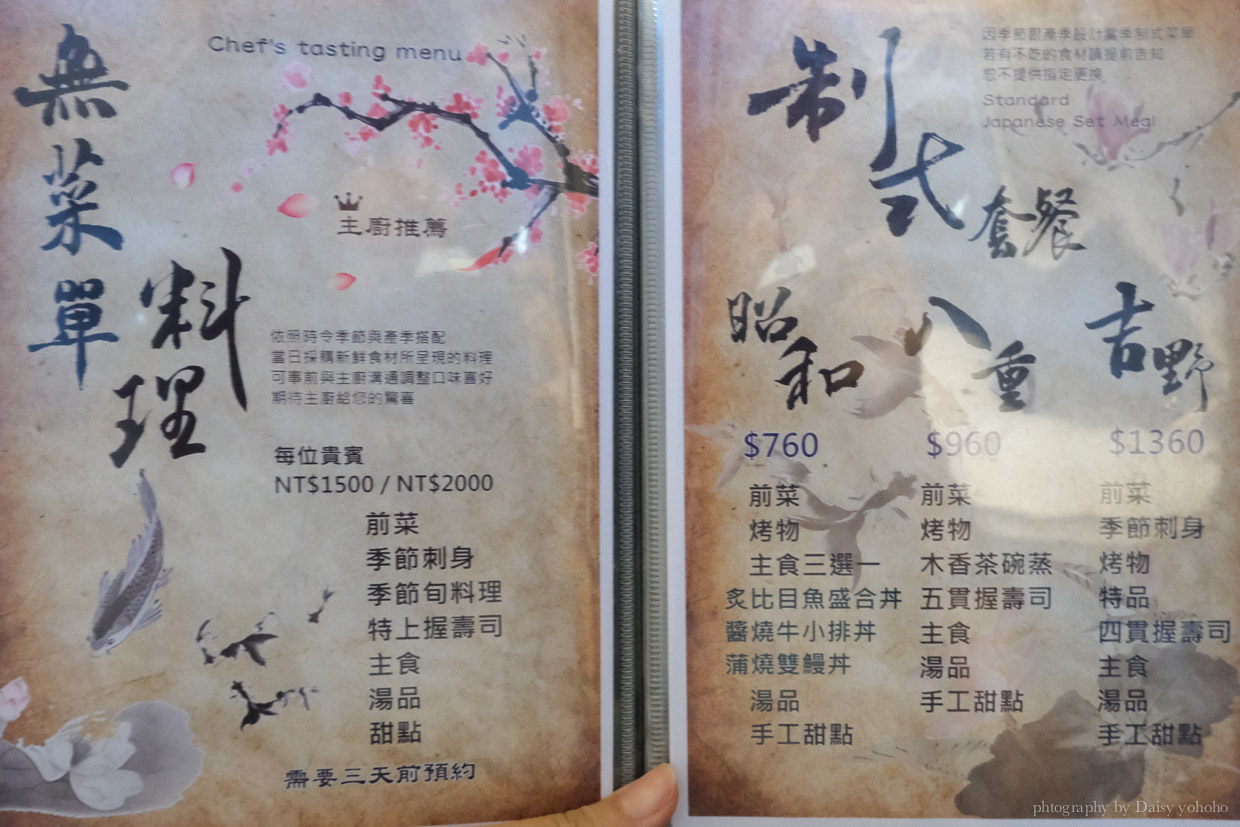 無菜單
料理
Chef's tasting menu
主廚推薦
依照時令季節與產季搭配
當日採購新鮮食材所呈現的料理
可事前與主廚溝通調整口味喜好
期待主廚給您的驚喜
每位貴賓
NT$1500 / NT$2000
前菜
季節刺身
季節旬料理
特上握壽司
主食
湯品
甜點
需要三天前預約
制式套餐
因季節跟產季設計當季制式菜單
若有不吃的食材請提前告知
恕不提供指定更換
Standard
Japanese Set Meal
昭和
$760
前菜
烤物
主食三選一
炙比目魚盛合丼
醬燒牛小排丼
蒲燒雙鰻丼
湯品
手工甜點
八重
$960
前菜
烤物
木香茶碗蒸
五貫握壽司
主食
湯品
手工甜點
吉野
$1360
前菜
季節刺身
烤物
特品
四貫握壽司
主食
湯品
手工甜點
phtography by Daisy yohoho